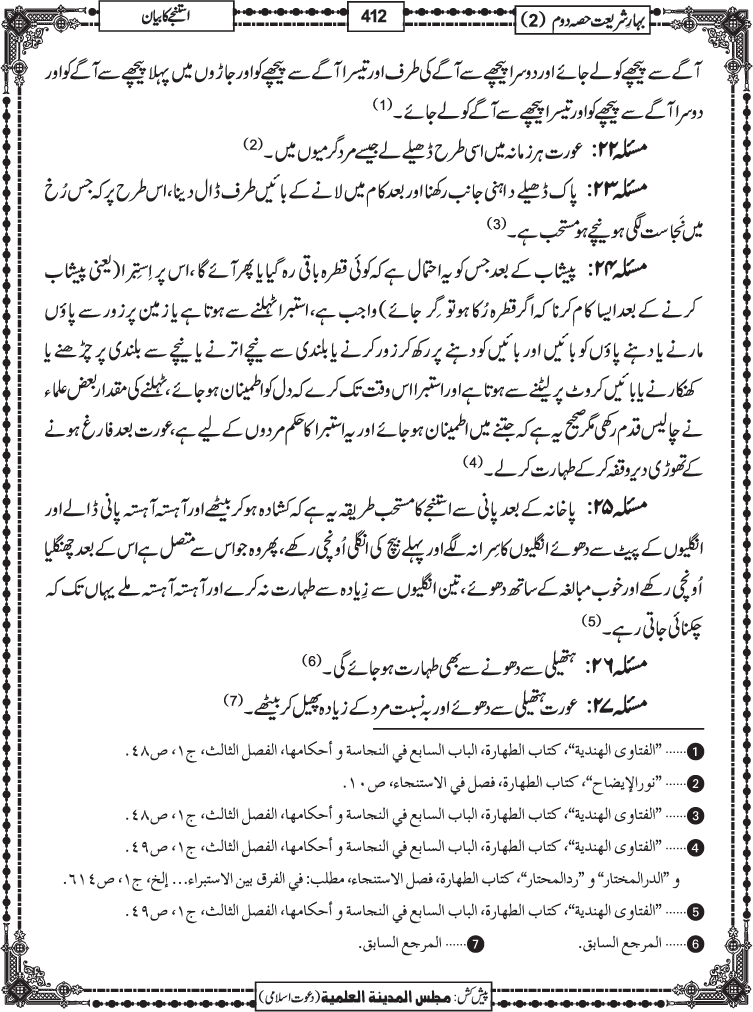 بہارِ شریعت حصہ دوم (2)
412
استنجے کا بیان
آگے سے پیچھے کو لے جائے اور دوسرا پیچھے سے آگے کی طرف اور تیسرا آگے سے پیچھے کو اور جاڑوں میں پہلا پیچھے سے آگے کو اور
دوسرا آگے سے پیچھے کو اور تیسرا پیچھے سے آگے کو لے جائے۔ (1)
مسئلہ ۲۲: عورت ہر زمانہ میں اسی طرح ڈھیلے لے جیسے مرد گرمیوں میں۔ (2)
مسئلہ ۲۳: پاک ڈھیلے داہنی جانب رکھنا اور بعد کام میں لانے کے بائیں طرف ڈال دینا، اس طرح پر کہ جس رُخ
میں نَجاست لگی ہو نیچے ہو مستحب ہے۔ (3)
مسئلہ ۲۴: پیشاب کے بعد جس کو یہ احتمال ہے کہ کوئی قطرہ باقی رہ گیا یا پھر آئے گا، اس پر اِستِبرا (یعنی پیشاب
کرنے کے بعد ایسا کام کرنا کہ اگر قطرہ رُکا ہو تو گِر جائے) واجب ہے، استبرا ٹہلنے سے ہوتا ہے یا زمین پر زور سے پاؤں
مارنے یا دہنے پاؤں کو بائیں اور بائیں کو دہنے پر رکھ کر زور کرنے یا بلندی سے نیچے اترنے یا نیچے سے بلندی پر چڑھنے یا
کھنکارنے یا بائیں کروٹ پر لیٹنے سے ہوتا ہے اور استبرا اس وقت تک کرے کہ دل کو اطمینان ہو جائے، ٹہلنے کی مقدار بعض علماء
نے چالیس قدم رکھی مگر صحیح یہ ہے کہ جتنے میں اطمینان ہو جائے اور یہ استبرا کا حکم مردوں کے لیے ہے، عورت بعد فارغ ہونے
کے تھوڑی دیر وقفہ کر کے طہارت کر لے۔ (4)
مسئلہ ۲۵: پاخانہ کے بعد پانی سے استنجے کا مستحب طریقہ یہ ہے کہ کشادہ ہو کر بیٹھے اور آہستہ آہستہ پانی ڈالے اور
انگلیوں کے پیٹ سے دھوئے انگلیوں کا سِرا نہ لگے اور پہلے بیچ کی انگلی اُونچی رکھے، پھر وہ جو اس سے متصل ہے اس کے بعد چھنگلیا
اُونچی رکھے اور خوب مبالغہ کے ساتھ دھوئے، تین انگلیوں سے زِیادہ سے طہارت نہ کرے اور آہستہ آہستہ ملے یہاں تک کہ
چکنائی جاتی رہے۔ (5)
مسئلہ ۲۶: ہتھیلی سے دھونے سے بھی طہارت ہو جائے گی۔ (6)
مسئلہ ۲۷: عورت ہتھیلی سے دھوئے اور بہ نسبت مرد کے زیادہ پھیل کر بیٹھے۔ (7)
1 ...... ”الفتاوی الهندية“، كتاب الطهارة، الباب السابع في النجاسة و أحكامها، الفصل الثالث، ج١، ص٤٨.
2 ...... ”نورالإيضاح“، كتاب الطهارة، فصل في الاستنجاء، ص١٠.
3 ...... ”الفتاوی الهندية“، كتاب الطهارة، الباب السابع في النجاسة و أحكامها، الفصل الثالث، ج١، ص٤٨.
4 ...... ”الفتاوی الهندية“، كتاب الطهارة، الباب السابع في النجاسة و أحكامها، الفصل الثالث، ج١، ص٤٩.
و ”الدرالمختار“ و ”ردالمحتار“، كتاب الطهارة، فصل الاستنجاء، مطلب: في الفرق بين الاستبراء... إلخ، ج١، ص٦١٤.
5 ...... ”الفتاوی الهندية“، كتاب الطهارة، الباب السابع في النجاسة و أحكامها، الفصل الثالث، ج١، ص٤٩.
6 ...... المرجع السابق. 7 ...... المرجع السابق.
پیش کش: مجلس المدينة العلمية (دعوت اسلامی)